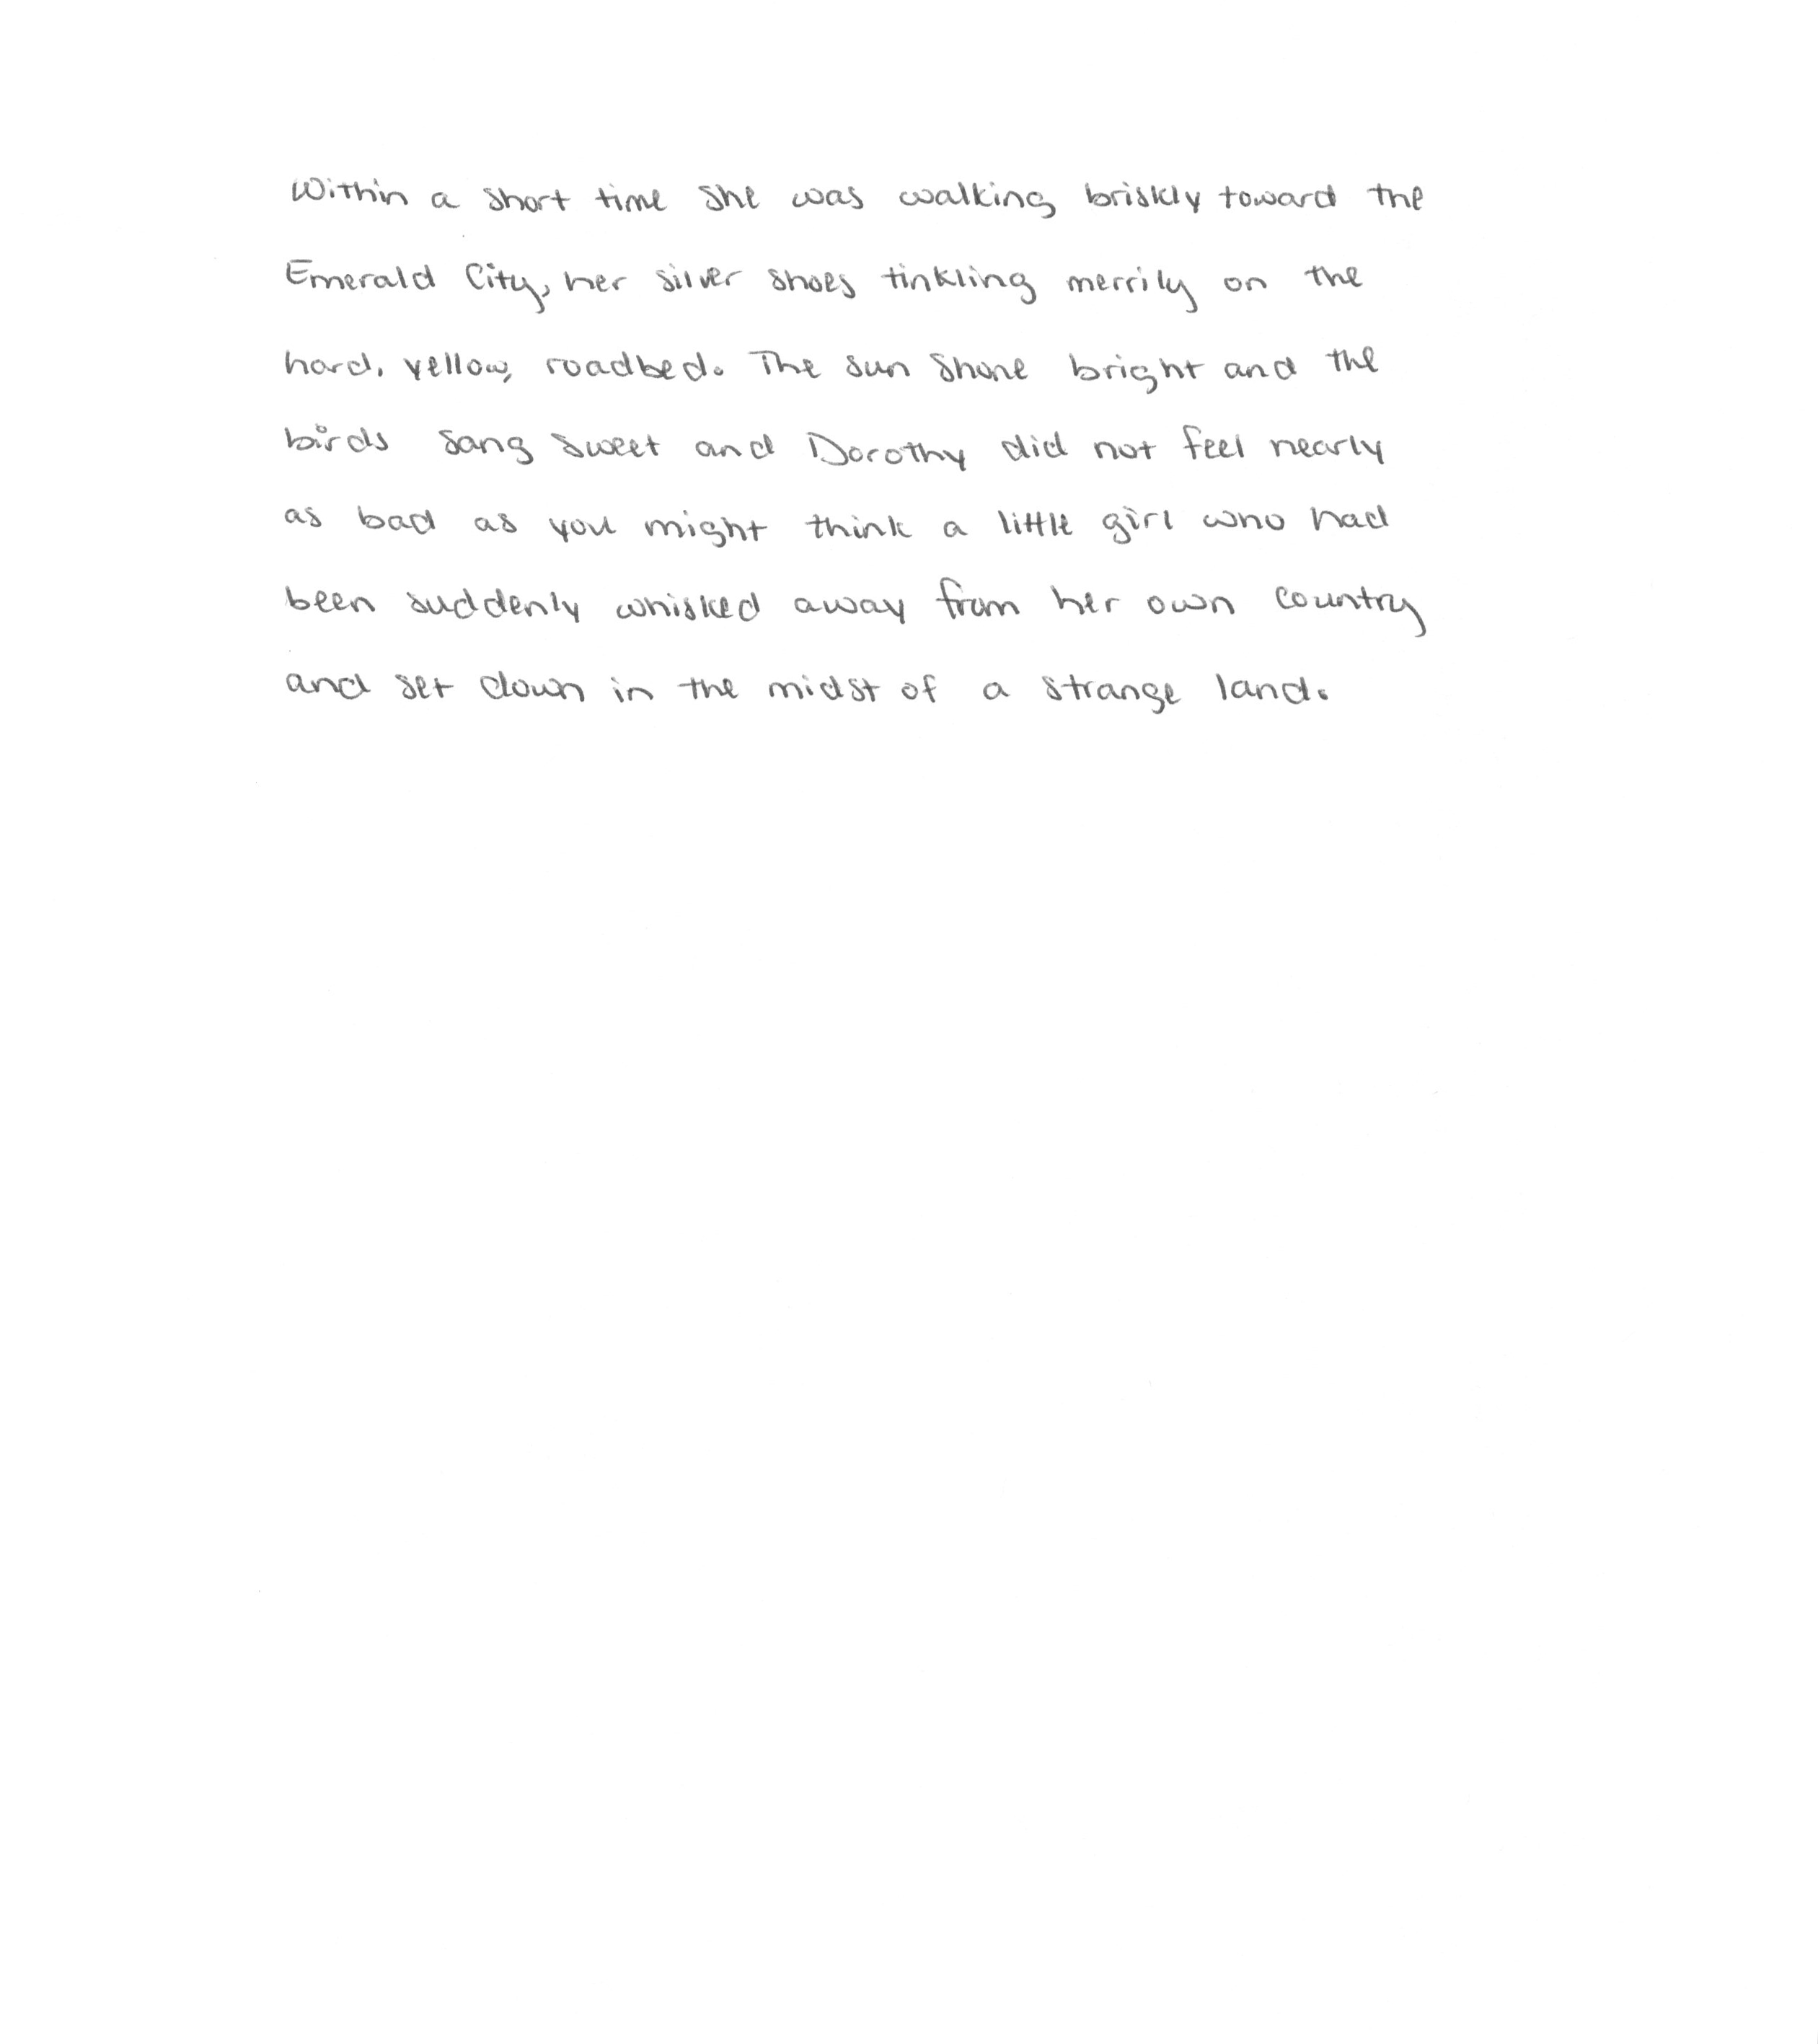 Within a short time she was walking briskly toward the
Emerald City, her silver shoes tinkling merrily on the
hard, yellow, roadbed. The sun shone bright and the
birds sang sweet and Dorothy did not feel nearly
as bad as you might think a little girl who had
been suddenly whisked away from her own country
and set down in the midst of a strange land.